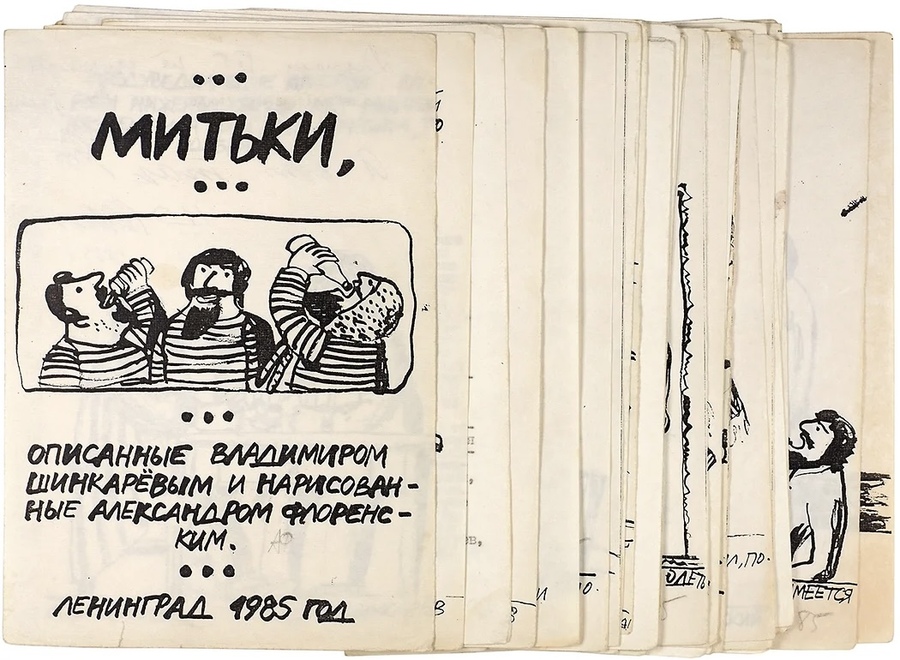 МИТЬКИ,
ОПИСАННЫЕ ВЛАДИМИРОМ
ШИНКАРЁВЫМ И НАРИСОВАН-
НЫЕ АЛЕКСАНДРОМ ФЛОРЕНС-
КИМ.
ЛЕНИНГРАД 1985 ГОД
ОДЕТЬ
Л, ПО.
МЕЕТСЯ
85